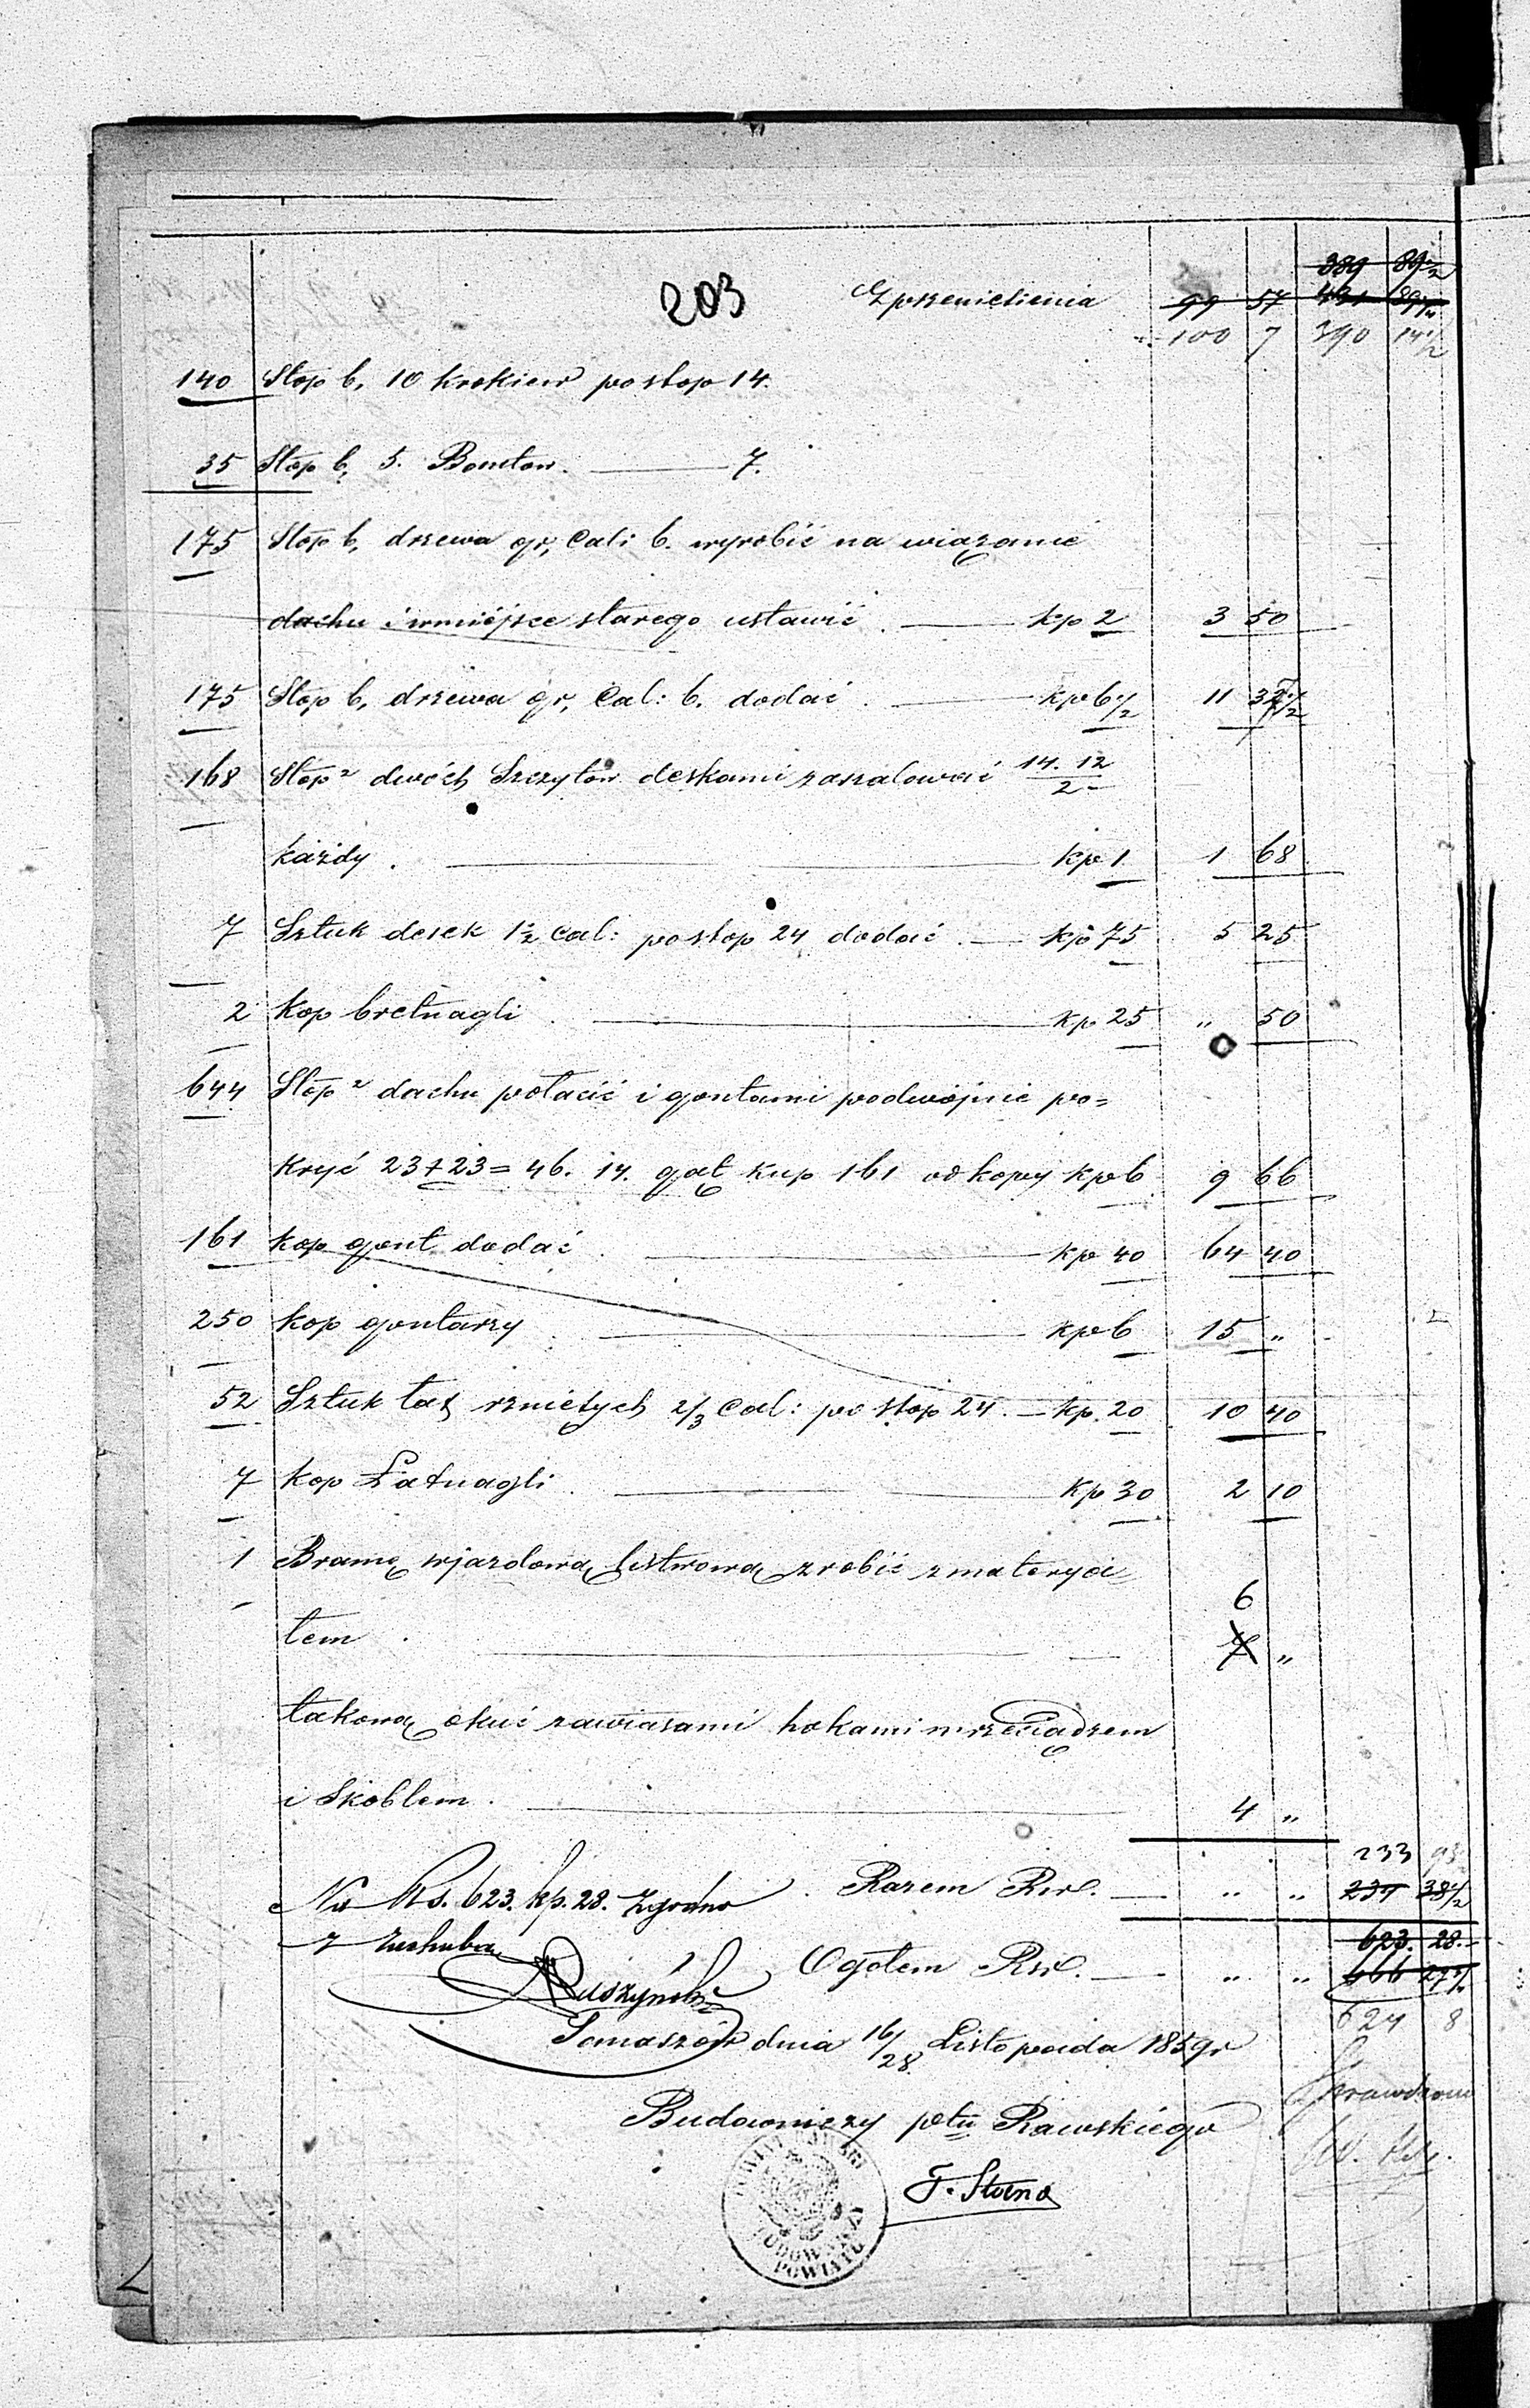 389 89 1/2
203 Z przeniesienia 99 57 431 89 1/2
100 7 390 14 1/2
140 Stop b, 10 krokiew po stop 14.
35 Stop b, 5. Bontow. — 7.
175 Stop b, drzewa gr, Cal: 6. wyrobić na wiązanie
dachu i w miejsce starego ustawić . — kp 2 3 50
175 Stop b, drzewa gr, Cal: 6. dodać . — kp 6 1/2 11 37 1/2
168 Stop² dwóch Szczytów deskami zaszalować 14. 12/2
każdy . — kp 1 1 68
7 Sztuk desek 1 1/2 Cal: po stop 24 dodać . — kp 75 5 25
2 kop bretnagli . — kp 25 " 50
644 Stop² dachu połacić i gontami podwójnie po=
kryć 23+23= 46. 14. gąt kup 161 od kopy kp 6 9 66
161 kop gont dodać . — kp 40 64 40
250 kop gontarzy . — kp 6 15 "
52 Sztuk łat rzniętych 2/3 Cal: po stop 24. — kp. 20 10 40
7 kop Łatnagli . — kp 30 2 10
1 Bramę wjazdową listwową zrobić z materya=
6
łem . — 7 "
takową okuć zawiasami hokami wrzeciądzem
i Skoblem . — 4 "
233 93
Na Rs. 623. kp. 28. Zgodno Razem Rsr. — " " 234 38 1/2
z Ruszyński 623. 28.
Ogółem Rsr. — " " 466 27 1/2
624 8
Tomaszów dnia 16/28. Listopada 1859 r
Sprawdzono
Budowniczy ptu Rawskiego
F. Stern
BUDOWNICZY POWIATU